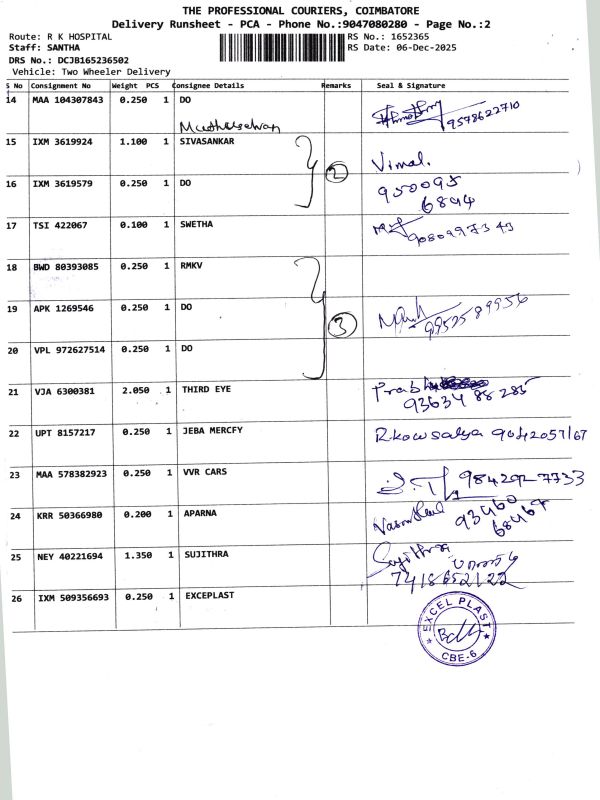 THE PROFESSIONAL COURIERS, COIMBATORE
Delivery Runsheet - PCA - Phone No.:9047080280 - Page No.:2
Route: R K HOSPITAL RS No.: 1652365
Staff: SANTHA RS Date: 06-Dec-2025
DRS No.: DCJB165236502
Vehicle: Two Wheeler Delivery
S No Consignment No Weight PCS Consignee Details Remarks Seal & Signature
14 MAA 104307843 0.250 1 DO
9578622710
15 IXM 3619924 1.100 1 SIVASANKAR
2 Vimal.
16 IXM 3619579 0.250 1 DO 950095
6844
17 TSI 422067 0.100 1 SWETHA
18 BWD 80393085 0.250 1 RMKV
19 APK 1269546 0.250 1 DO
3 9952589956
20 VPL 972627514 0.250 1 DO
21 VJA 6300381 2.050 1 THIRD EYE
93634 88 285
22 UPT 8157217 0.250 1 JEBA MERCFY R kowsalya 9042057167
23 MAA 578382923 0.250 1 VVR CARS 9842927733
24 KRR 50366980 0.200 1 APARNA 93460
68464
25 NEY 40221694 1.350 1 SUJITHRA Sujithra
7418652122
26 IXM 509356693 0.250 1 EXCEPLAST
EXCEL PLAST
CBE-6